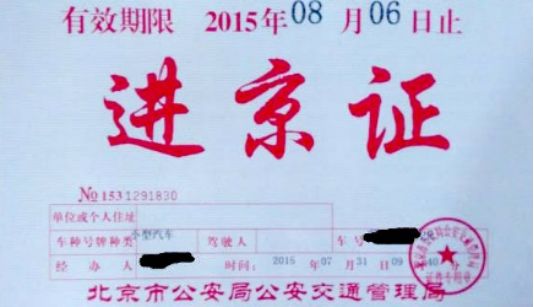 有效期限 2015年08月06日止
进京证
No 1531291830
单位或个人住址
车种号牌种类 小型汽车 驾驶人 车号
经办人 时间: 2015年07月31日09 40分
北京市公安局公安交通管理局